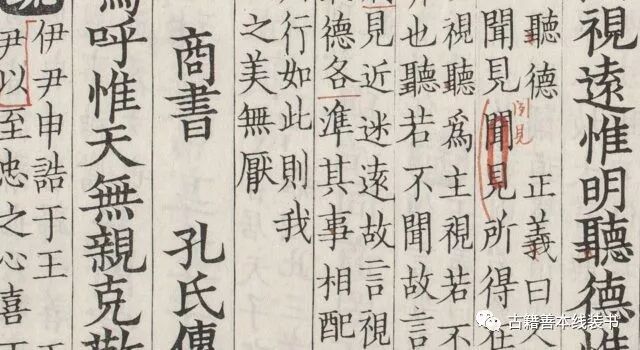 視遠惟明聽德惟
聽德　正義曰人
聞見聞見所得在
視聽為主視若不
也聽若不聞故言
見近迷遠故言視
德各準其事相配
行如此則我
之美無厭
商書　孔氏傳
嗚呼惟天無親克敬
伊尹申誥于王
尹以至忠之心喜
古籍善本线装书